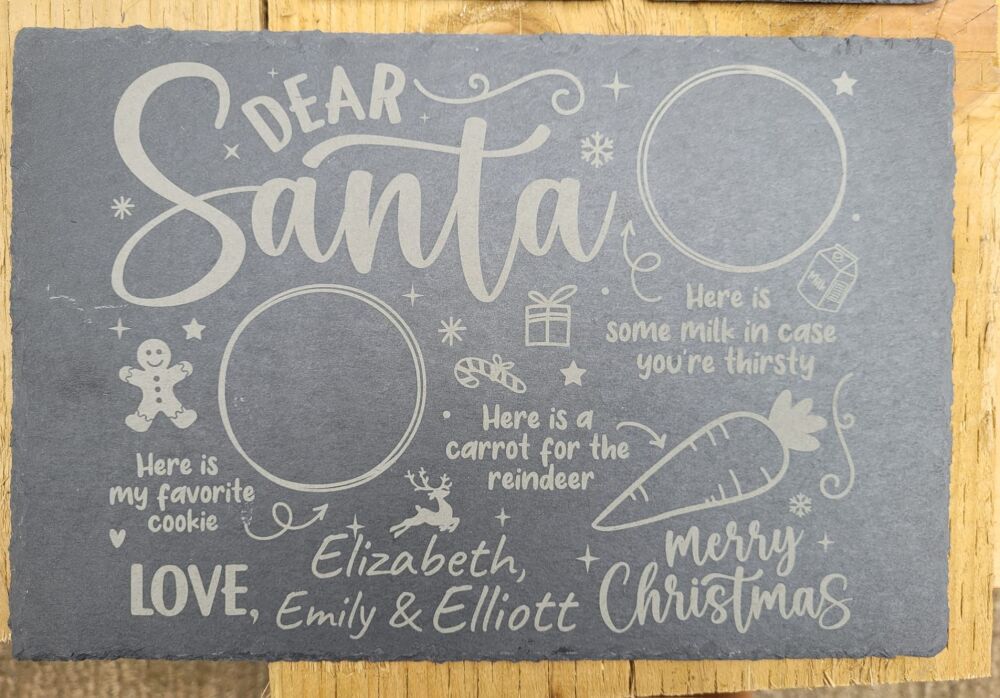 DEAR
Santa
Milk
Here is
some milk in case
you're thirsty
Here is a
carrot for the
reindeer
Here is
my favorite
cookie
LOVE,
Elizabeth,
Emily & Elliott
merry
Christmas